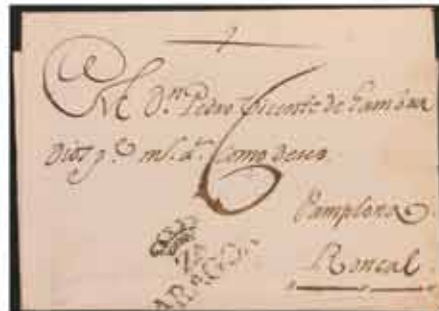 A Dn. Pedro Vicente de Gambra
Dios ge. ms. as. Como deseo
6
Pamplona
Roncal
ARAGON